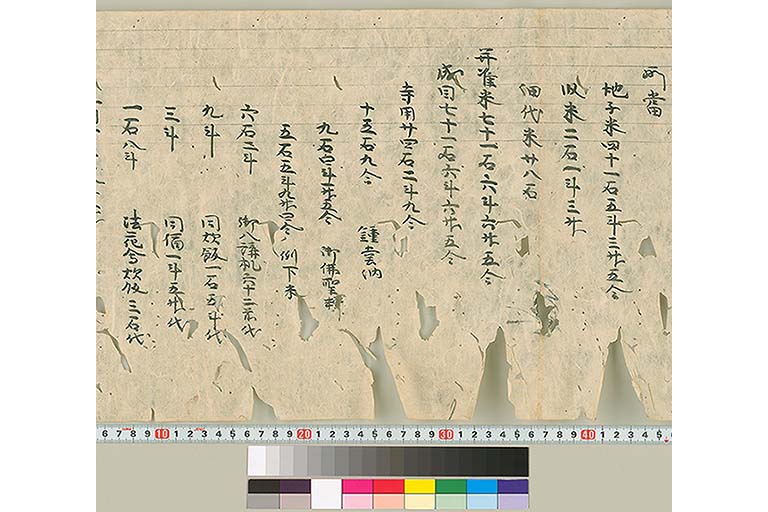 所當
地子米四十一石五斗三升五合
収米二石一斗三升
佃代米廿八石
并准米七十一石六斗六升五合
成目七十一石六斗六升五合
寺用廿四石二斗九合
十五石九合 鐘堂納
九石二斗一升五合 御佛聖新
五石五斗九升四合 例下米
六石二斗 御八講机六十二前代
九斗 同炊飯一石五斗代
三斗 同備一斗五升代
一石八斗 法花会炊飯三石代
6 7 8 9 10 1 2 3 4 5 6 7 8 9 20 1 2 3 4 5 6 7 8 9 30 1 2 3 4 5 6 7 8 9 40 1 2 3 4 5